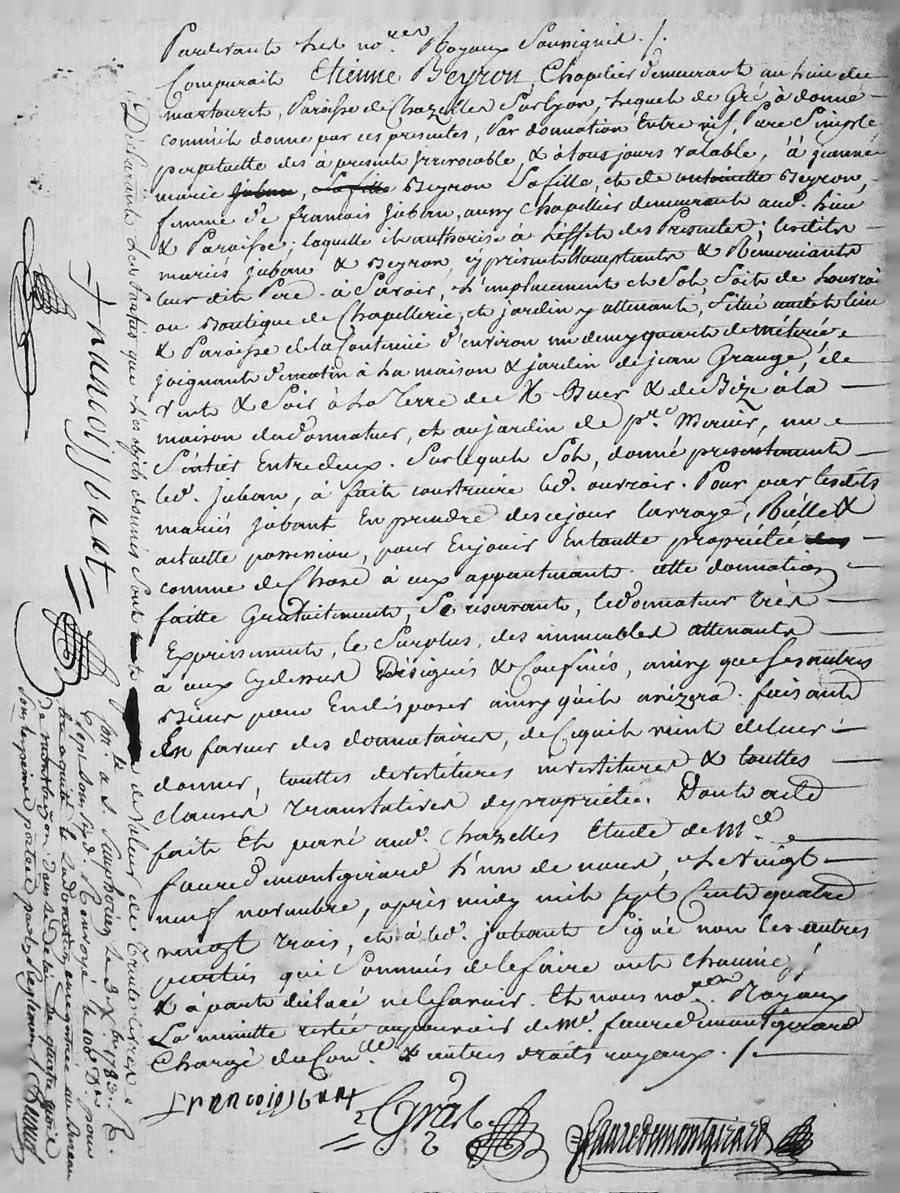 Pardevant Les no.res Royaux Soussignés ./.
Comparait Etienne Beyron, Chapelier demeurant au Lieu du
martouret, Paroisse de Chazelles Sur Lyon, Lequel de Gré à donné
comm'il donne par ces presentes, Par donnation Entre vifs, Pure Simple
perpetuelle dès à present Irrevocable, & à tous jours valable, à jeanne
marie Beyron Sa fille, et de antoinette Beyron,
femme de francois juban, aussy Chapellier demeurant aud. Lieu
& Paroisse; laquelle il authorise à L'effet des Presentes; lesdits
mariés juban & Beyron, cy presents acceptants & Remerciants
leur dit Pere. à Savoir, L'emplacement et Sol, Soite de Louvroir
ou Boutique de Chapellerie, et jardin y attenant, Situé audit lieu
& Paroisse de la Contenue d'environ un demy quart de métérée
joignant d'matin à La maison & jardin de jean Grange, de
vent & Soir à La Terre de & de Bize à la
maison dudonnateur, et au jardin de p.re un
Sentier Entre deux. Sur lequel Sol, donné presentement
led. juban, à fait construire led. ouvroir. Pour par lesdits
mariés jubant En prendre dès cejour Larraye, Réélle &
actuelle possession, pour Enjouir En toutte propriétée
comme de Chose à eux appartenante. cette donnation
faitte Gratuitement, Se reservant, ledonnateur très
Expressement, le Surplus, des immeubles attenants
à ceux cydessus Désignés & Confinés, ainsy que Ses autres
Biens pour Endisposer ainsy qu'il avizera. faisant
En faveur des donnataires, de Ce qu'il vient de leur
donner, touttes devestitures investitures & touttes
clauses translatives depropriétée. Dont acte
fait Et passé aud. Chazelles Etude de M.e
faure d montgirard L'un de nous, Le vingt
neuf novembre, après midy mil sept Cents quatre
vingt trois, et à led. jubant Signé non les autres
parties qui Sommés de le faire ont chacune
& à part déclaré ne le Savoir. Et nous no.res Royaux
La minutte restée au pouvoir de M.e faure d montgirard
Chargé du Con.lle & autres droits royaux. ./.
Francois Jubant
Gras
faure d montgirard
Déclarants Les parties que Les objets donnés Sont de valeur de Trente Livres
francois Jubant
Con.lé a S. Simphorien Le 3 X.bre 1783. R.
Sept Sous Six d. Renvoyé le 100.e D. pour
être acquité & la donation enregistrée au Bureau
de montbrizon dans le Delai de quatre mois
Sous les peines portées par les Reglements